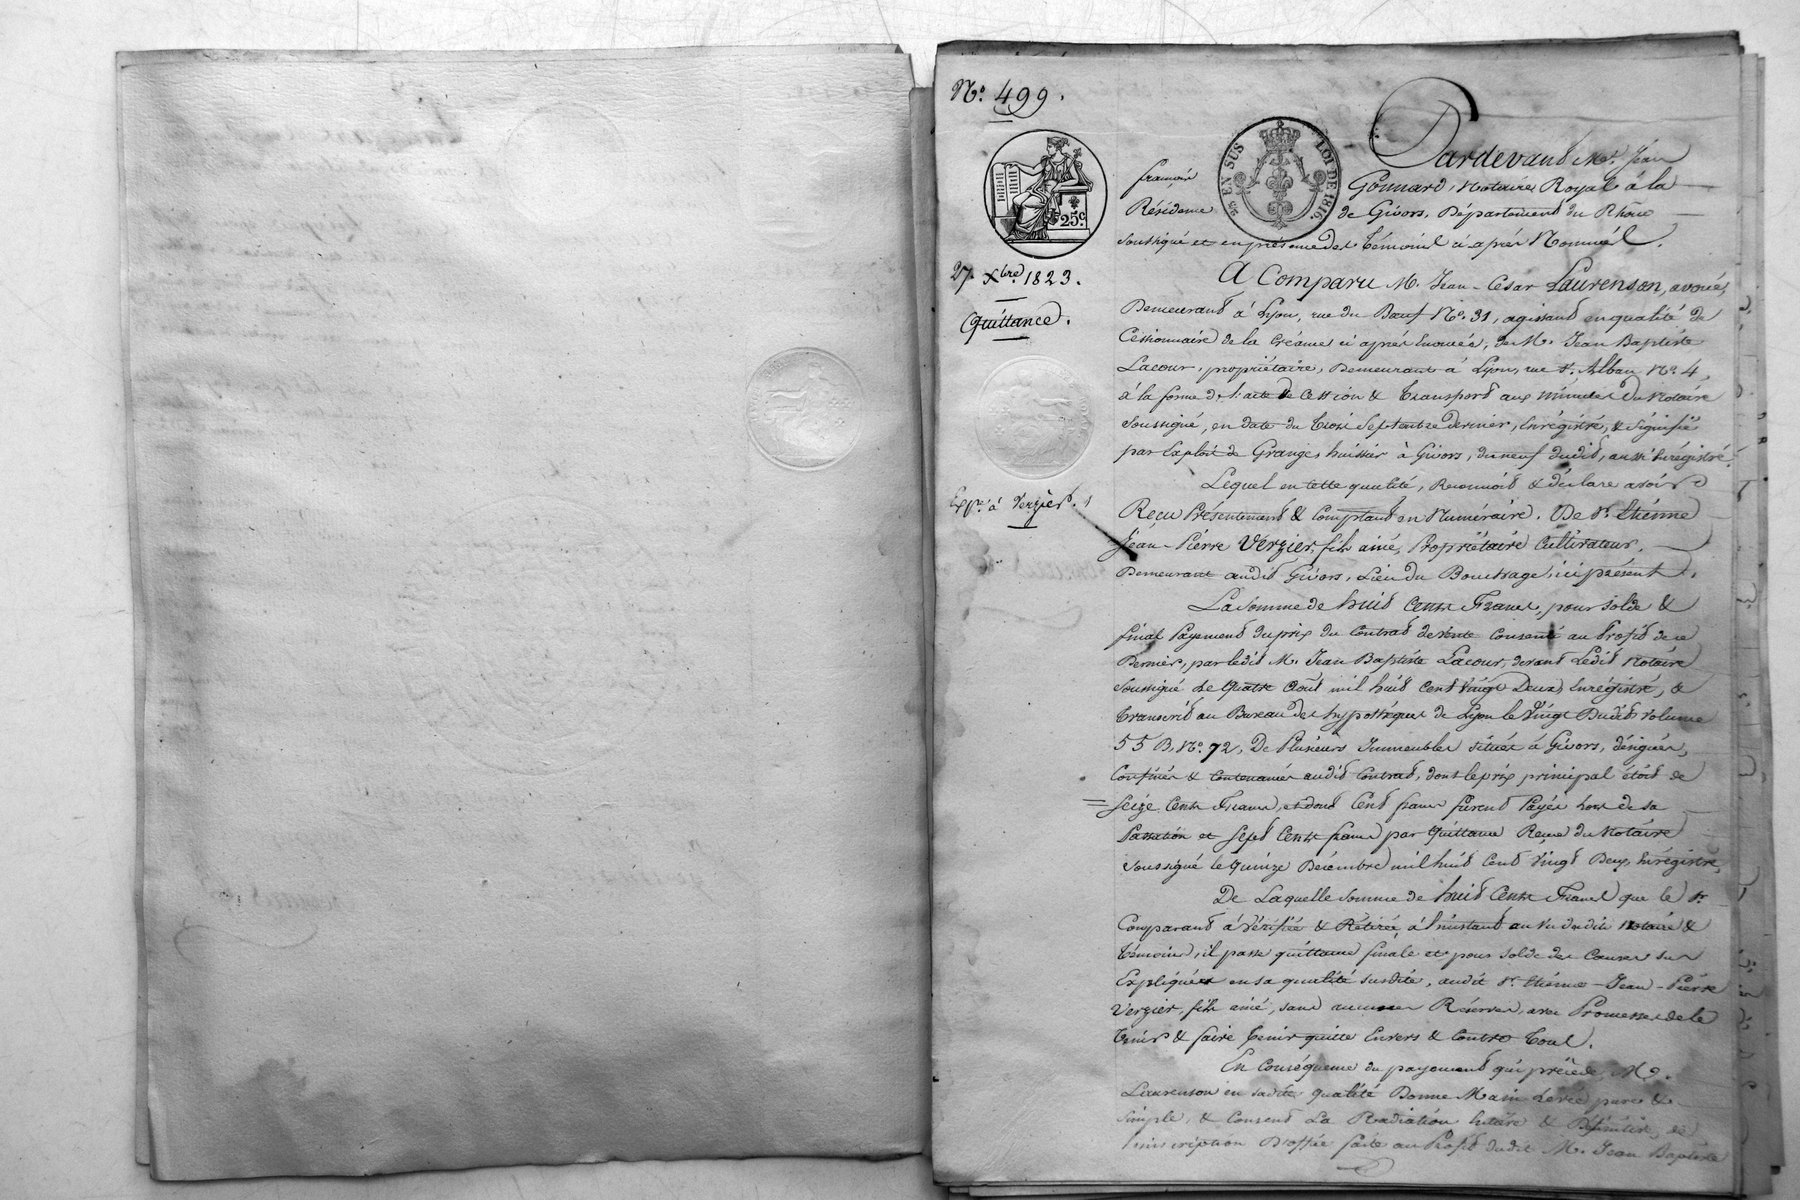 N.º 499.
25 EN SUS
LOI DE 1816.
25.c
27. Xbre 1823.
Quittance.
Exp.on à Verzier. 1
Pardevant M.e Jean
françois Gonnard, Notaire Royal à la
Résidence de Givors, Département du Rhône
Soussigné et en présence des témoins ci-après Nommés.
A Comparu M. Jean-César Laurenson, avoué,
Demeurant à Lyon, rue du Bœuf N.º 31, agissant en qualité de
Cessionnaire de la Créance ci après Enoncée, de M. Jean Baptiste
Lacour, propriétaire, Demeurant à Lyon, rue St. Alban N.º 4,
à la forme de l'acte de Cession & Transport aux minutes du Notaire
Soussigné, en date du trois Septembre dernier, Enrégistré, & Signifié
par Exploit de Granges huissier à Givors, du neuf dudit, aussi Enrégistré.
Lequel en cette qualité, Reconnoit & déclare avoir
Reçu Présentement & Comptant en Numéraire. De Sr. Etienne
Jean-Pierre Verzier, fils ainé, Propriétaire Cultivateur,
Demeurant audit Givors, Lieu du Bouchage, ici présent.
La Somme de huit Cents Francs, pour solde &
final Payement du prix du Contrat de Vente Consenti au Profit de ce
Dernier, par ledit M. Jean Baptiste Lacour, devant Ledit Notaire
Soussigné le Quatre Août mil huit Cent Vingt Deux, Enrégistré, &
transcrit au Bureau des hypothèques de Lyon le Vingt Dudit Volume
55 B, N.º 72, De Plusieurs Immeubles situés à Givors, désignés,
Confinés & Contenanciés audit Contrat, dont le prix principal étoit de
Seize Cents Francs, et dont Cent francs furent Payés hors de sa
Passation et Sept Cents francs par Quittance Reçue du Notaire
Soussigné le Quinze Décembre mil huit Cent Vingt Deux, Enrégistré,
De Laquelle Somme de huit Cents Francs que le Sr.
Comparant à Vérifiée & Retirée, à l'instant au vu dudit Notaire &
témoins, il passe quittance finale et pour solde des Causes sus
Expliquées en sa qualité susdite, audit Sr. Etienne-Jean-Pierre
Verzier, fils ainé, sans aucunes Réserves, avec Promesse de le
tenir & faire tenir quitte Envers & Contre tous.
En Conséquence du payement qui précède, M.
Laurenson en sadite qualité Donne Main Levée pure &
simple, & Consent La Radiation Entière & Définitive, de
l'inscription D'office faite au Profit dudit M. Jean Baptiste